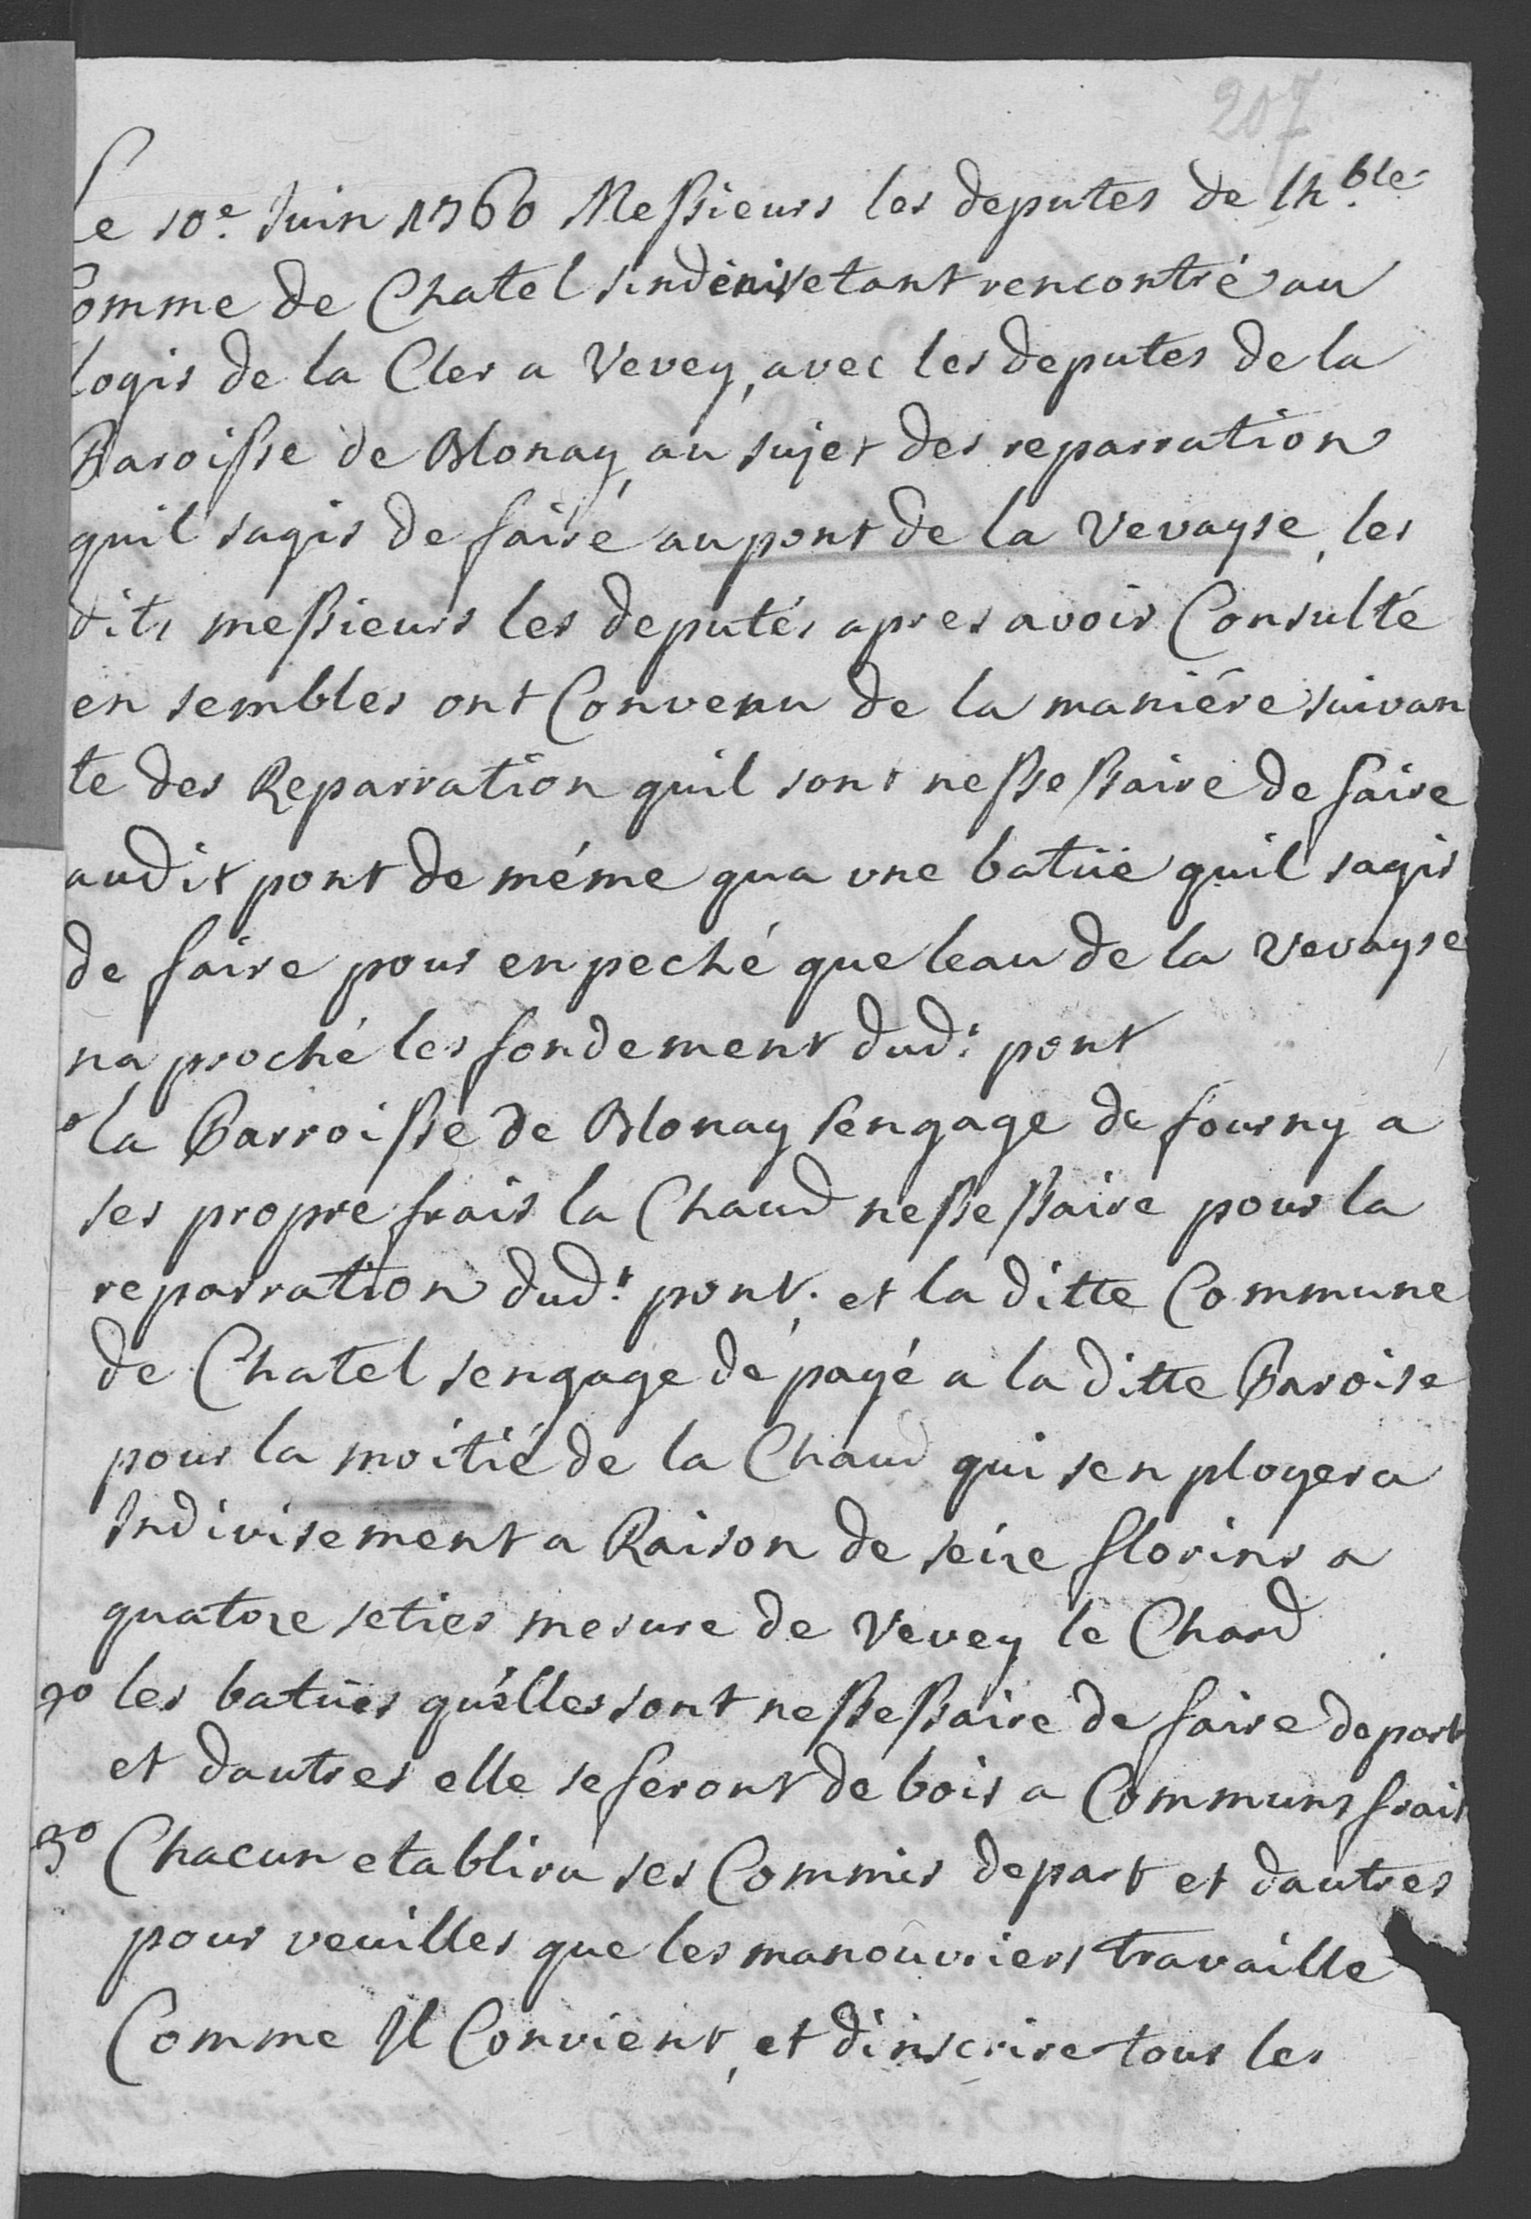 207
Le 10.e Juin 1760 Messieurs les deputes de lh.ble
Comme de Chatel sindenis etant rencontré au
logis de la Clef a Vevey, avec les deputes de la
Paroisse de Blonay, au sujet des reparration
quil sagis de faire au pont de la Vevayse, les
dits messieurs les deputés apres avoir Consulté
en sembles ont Convenu de la maniére suivan
te des Reparration quil sont nessessaire de faire
audit pont de méme qua une batüe quil sagis
de faire pour enpeché que leau de la Vevayse
na proché les fondement dud.t pont
o la Parroisse de Blonay sengage de fourny a
ses propre frais la Chaud nessessaire pour la
reparration dud.t pont, et la ditte Commune
de Chatel sengage de payé a la ditte Paroise
pour la moitié de la Chaud qui senployera
Indivisement a Raison de seize florins a
quatoze setier mesure de Vevey le Chard
2o les batües quélles sont nessessaire de faire de part
et dautres elle se feront de bois a Communs frais
3o Chacun etablira ses Commis de part et dautres
pour veuilles que les manoûvriers travaille
Comme Il Convient, et dinscrire tous les